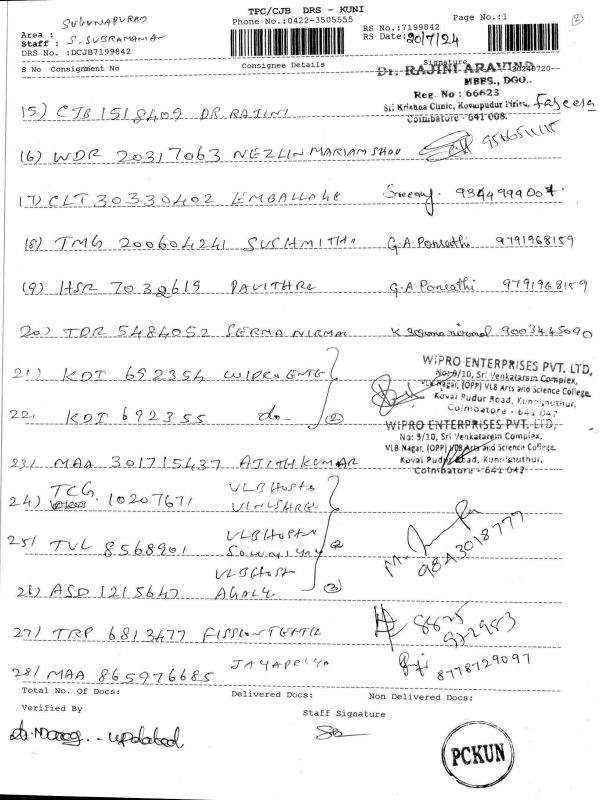 TPC/CJB DRS - KUNI
Phone No.:0422-3505555 Page No.:1 2
Area : SUGUNAPURAM RS No.:7199842
Staff : S. SUBRAMANIA RS Date: 20/7/24
DRS No. :DCJB7199842
S No Consignment No Consignee Details Signature
Dr. RAJINI ARAVIND
MBBS., DGO..
Reg. No : 66623
Sri Krishna Clinic, Kovaipudur Pirivu,
Coimbatore - 641 008.
15) CJB 1518409 DR RAJINI
16) WDR 20317063 NEZLIN MARIAM
17) CLT 30330402 9344999007
18) TMG 200604241 SUSHMITHA G.A. Ponsathi 9791968159
19) HSR 7032619 PAVITHRA G.A. Ponsathi 9791968159
20) TDR 5484052 NIRMAL 9003445090
WIPRO ENTERPRISES PVT. LTD,
No: 9/10, Sri Venkataram Complex,
VLB Nagar, (OPP) VLB Arts and Science College.
Kovai Pudur Road, Kuniiputhur,
Coimbatore - 641 042
21) KDI 692354 WIPRO ENTE
22) KDI 692355 do 2
WIPRO ENTERPRISES PVT. LTD,
No: 9/10, Sri Venkataram Complex,
VLB Nagar, (OPP) VLB Arts and Science College.
Kovai Pudur Road, Kuniiputhur,
Coimbatore - 641 042
23) MAA 301715437 AJITHKUMAR
24) TCG 10207671 VLB HOSTE
25) TVL 8568901 VLB HOSTE 9843018777
26) ASD 1215647 VLB HOST 3
27) TRP 6813477
28) MAA 865976685 JAYAPRIYA 8778729097
Total No. Of Docs: Delivered Docs: Non Delivered Docs:
Verified By Staff Signature
updated
PCKUN